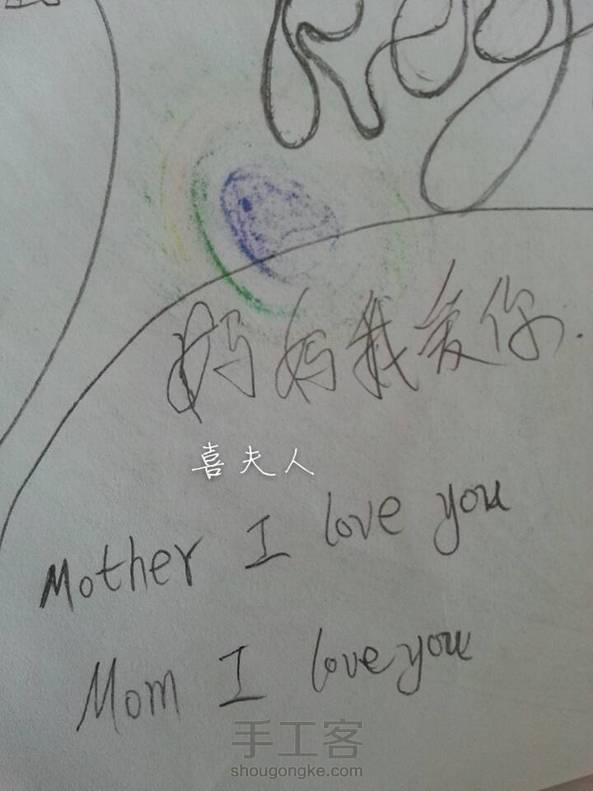 妈妈我爱你.
喜夫人
Mother I love you
Mom I love you
手工客
shougongke.com